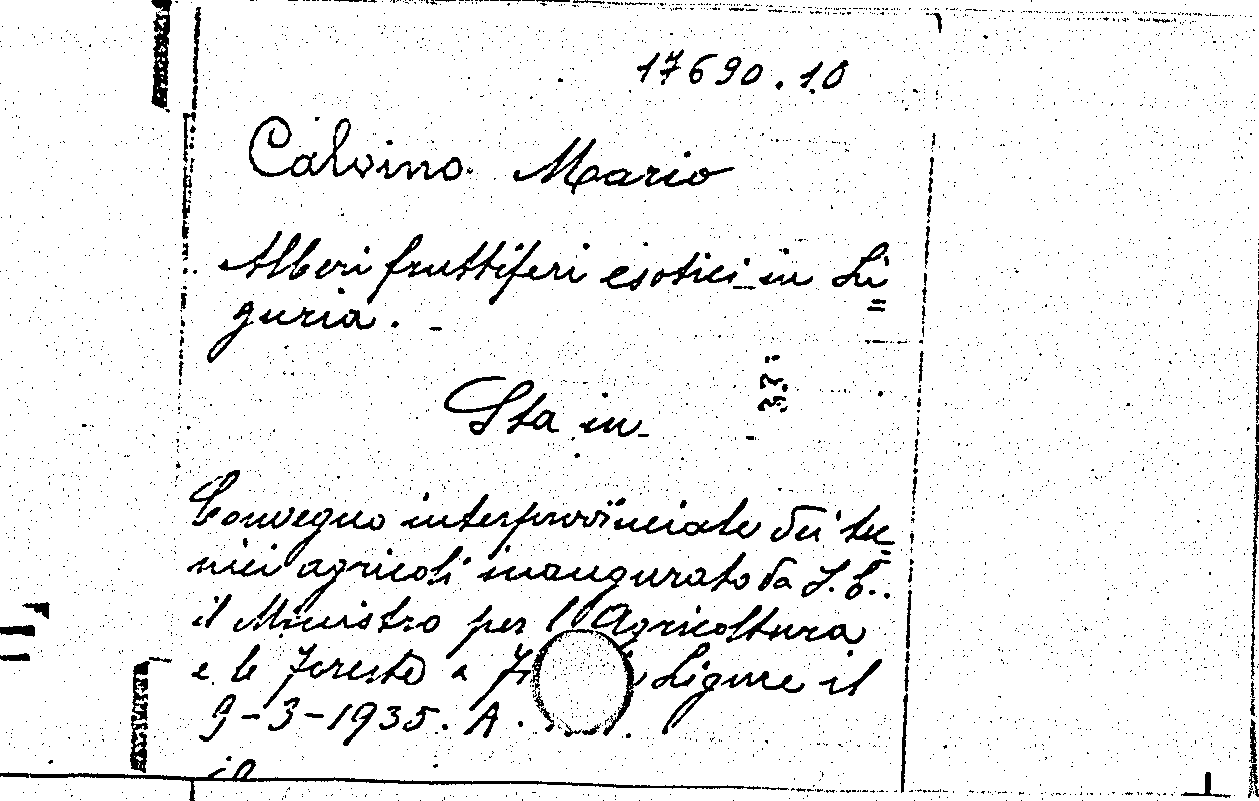 17690.10
Calvino Mario
Alberi fruttiferi esotici in Li=
guria. -
Sta in
Convegno interprovinciale dei tec=
nici agricoli inaugurato da S. E.
il Ministro per l'Agricoltura
e le Foreste a Ligure il
9-3-1935. A.